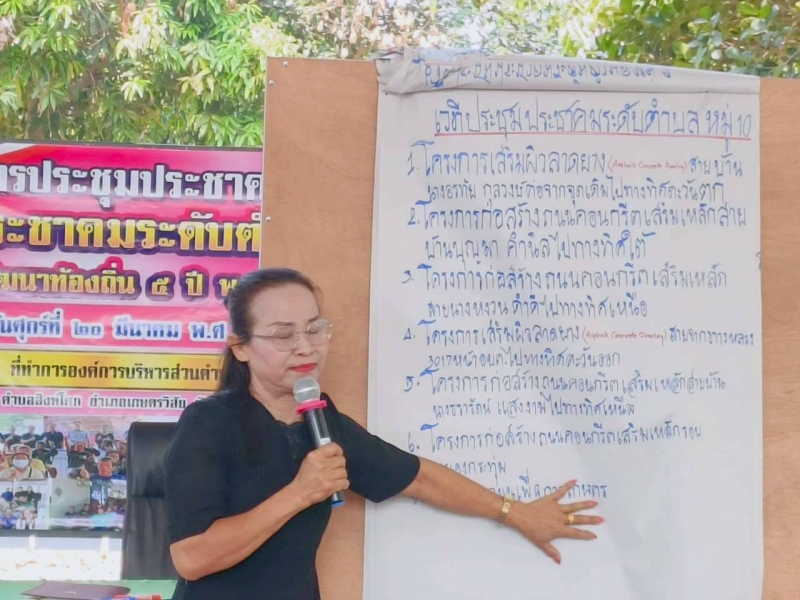 รประชุมประชาค
ระชาคมระดับตำ
ฒนาท้องถิ่น ๕ ปี พ
นศุกร์ที่ ๒๐ มีนาคม พ.ศ
ที่ทำการองค์การบริหารส่วนตำ
ตำบลสิงห์โคก อำเภอเกษตรวิสัย
เวทีประชุมประชาคมระดับตำบล หมู่ 10
1. โครงการเสริมผิวลาดยาง (Asphalt Concrete Overlay) สายบ้าน
นางอรทัย กุลวงษ์ต่อจากจุดเดิมไปทางทิศตะวันตก
2. โครงการก่อสร้างถนนคอนกรีตเสริมเหล็กสาย
บ้านบุญมา คำนิลไปทางทิศใต้
3. โครงการก่อสร้างถนนคอนกรีตเสริมเหล็ก
สายนางหงวน ดำดีไปทางทิศเหนือ
4. โครงการเสริมผิวลาดยาง (Asphalt Concrete Overlay) สายจากทางหลวง
ไปทางทิศตะวันออก
5. โครงการก่อสร้างถนนคอนกรีตเสริมเหล็กสายบ้าน
นางธรารัตน์ แสงงามไปทางทิศเหนือ
6. โครงการก่อสร้างถนนคอนกรีตเสริมเหล็กรอบ
เพื่อการเกษตร